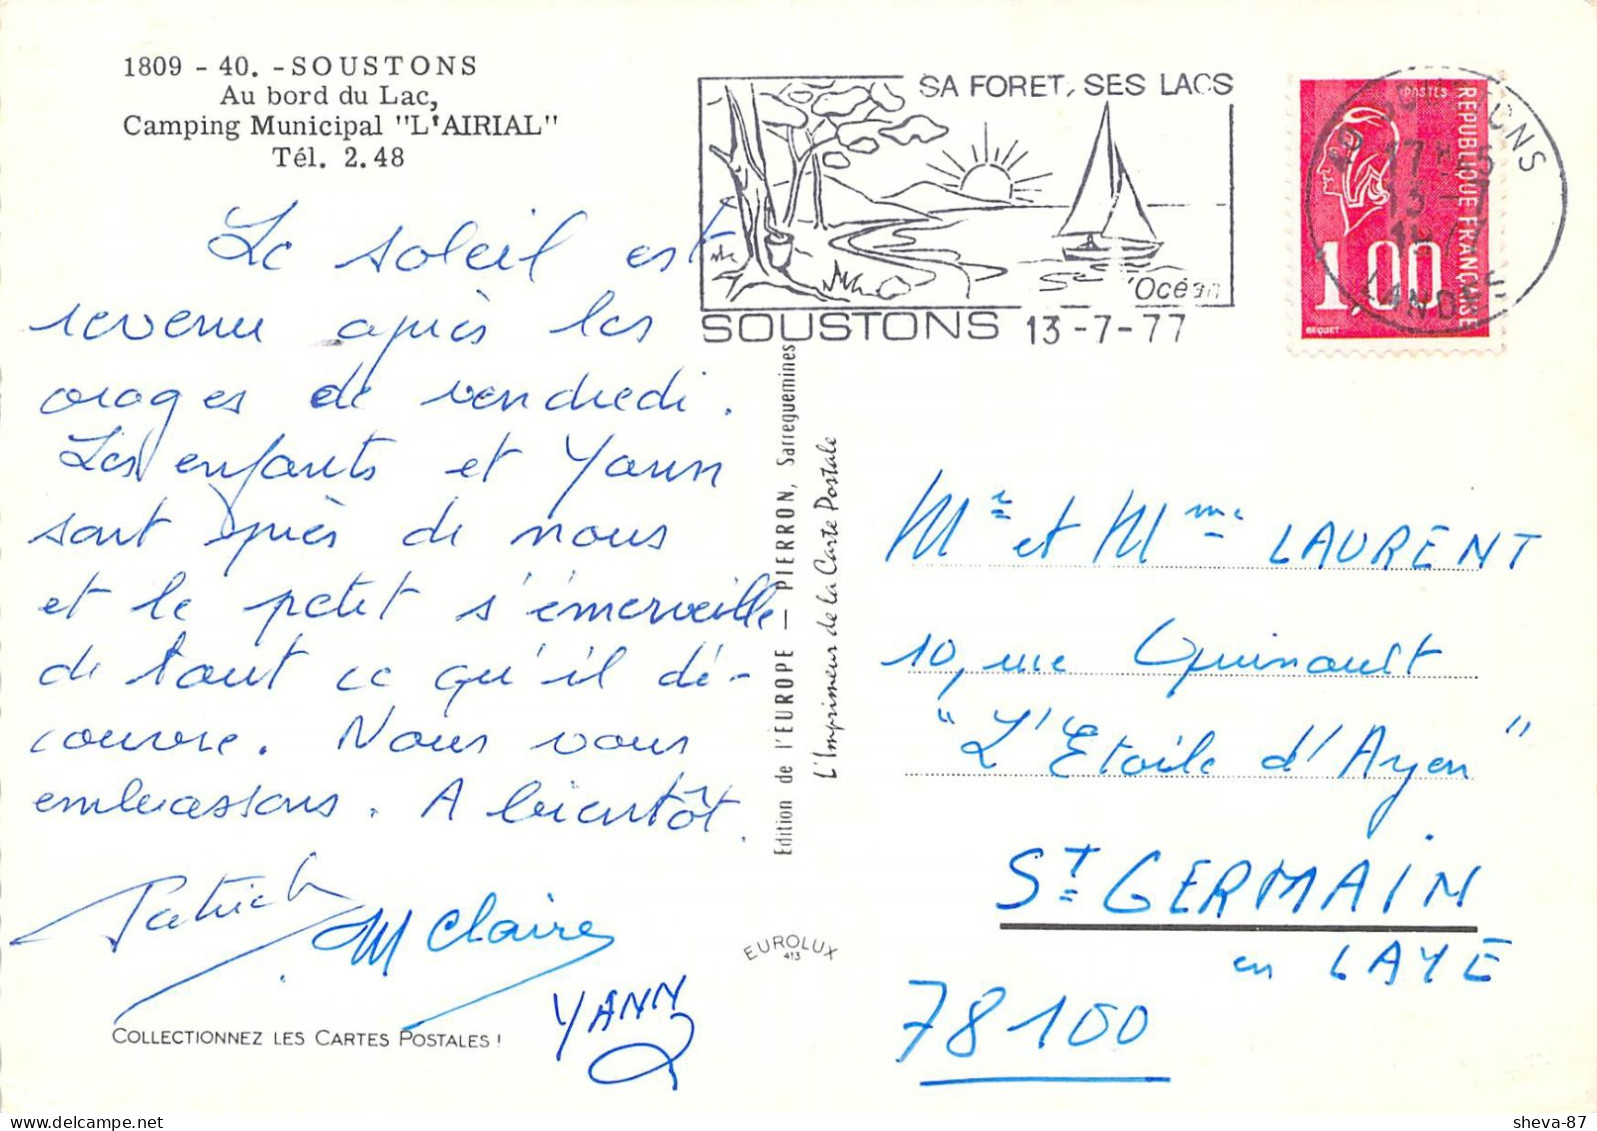 1809 - 40. - SOUSTONS
Au bord du Lac,
Camping Municipal "L'AIRIAL"
Tél. 2.48
SA FORET, SES LACS
Océan
SOUSTONS 13-7-77
POSTES
REPUBLIQUE FRANÇAISE
1,00
BEQUET
40 SOUSTONS
17 H 45
13 - 7
1977
LANDES
Le soleil est
revenu après les
orages de vendredi.
Les enfants et Yann
sont près de nous
et le petit s'émerveille
de tout ce qu'il dé-
couvre. Nous vous
embrassons. A bientôt.
Patrick
M Claire
YANN
Edition de l'EUROPE — PIERRON, Sarreguemines
L'Imprimeur de la Carte Postale
Mr et Mme LAURENT
10, rue Quinault
"L'Etoile d'Ayen"
ST GERMAIN
en LAYE
78100
EUROLUX
413
COLLECTIONNEZ LES CARTES POSTALES !
sheva-87